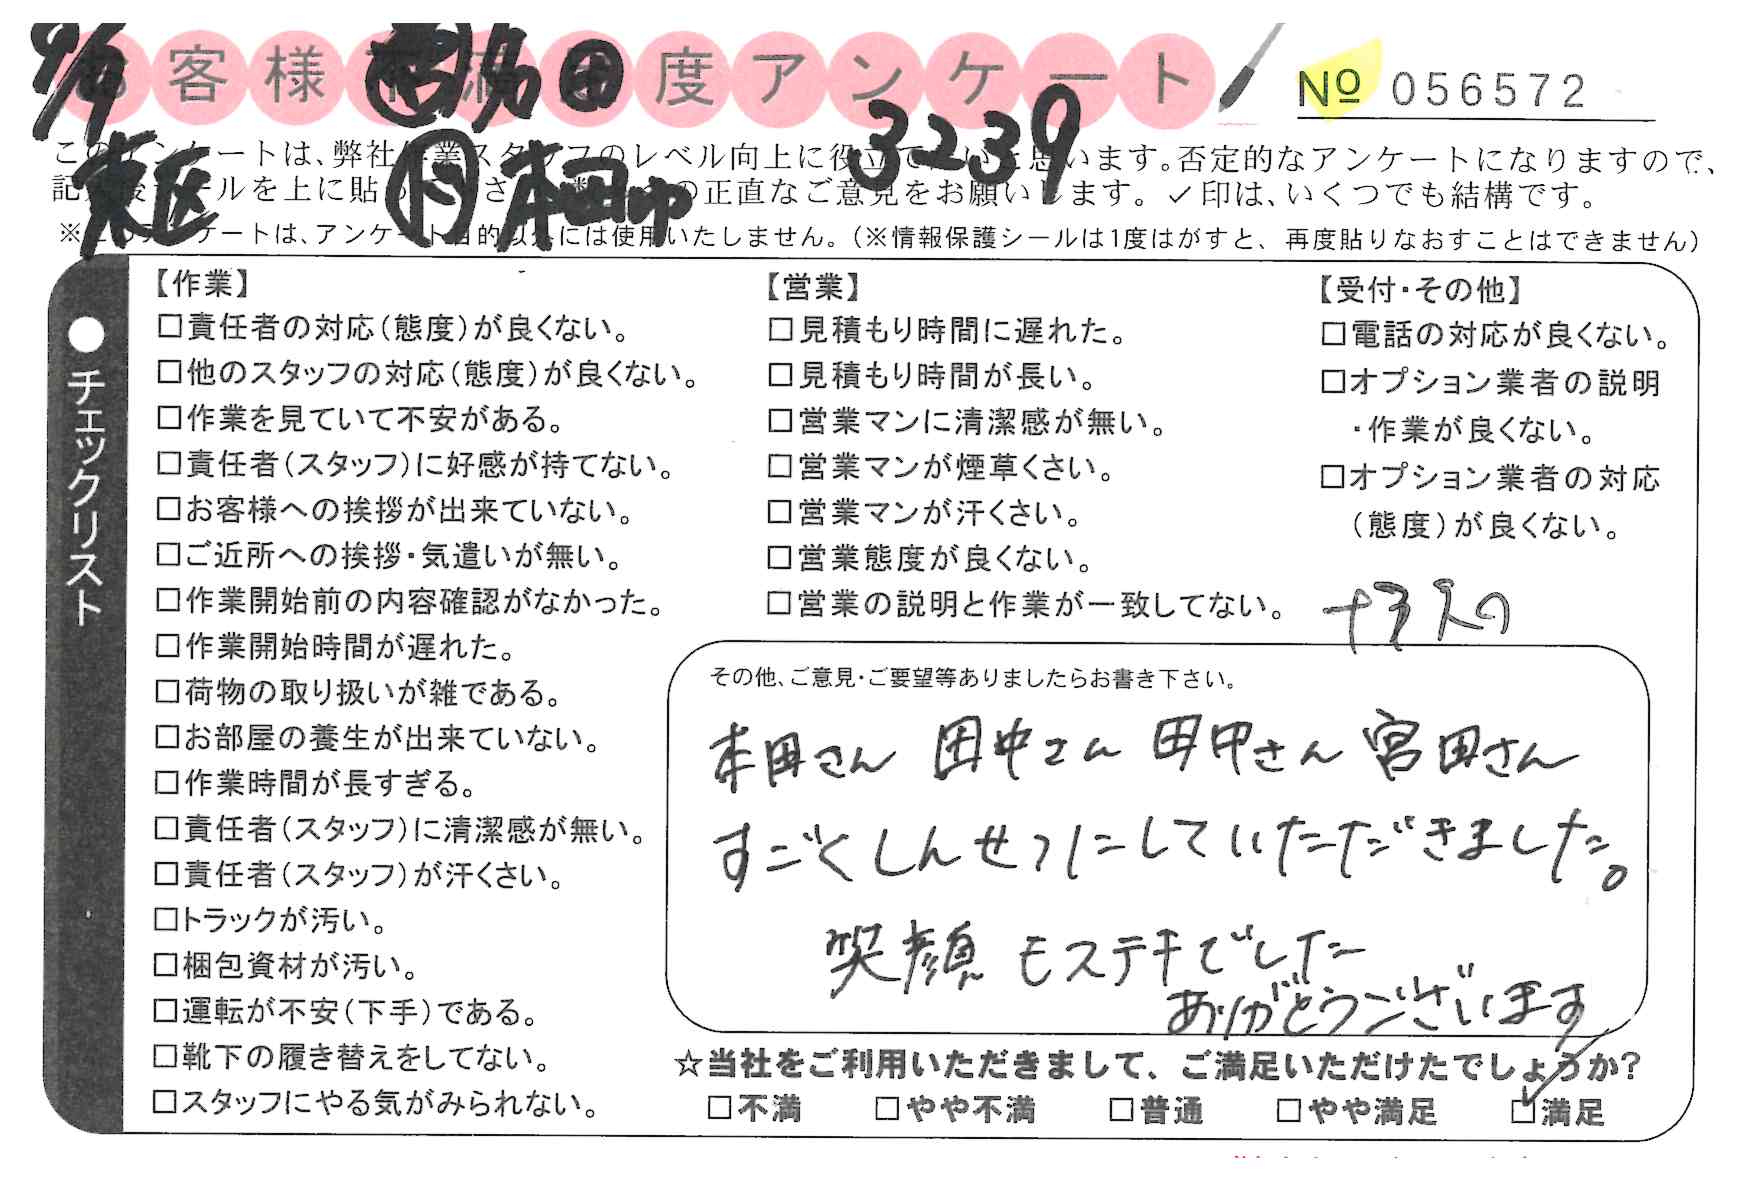 お客様不満足度アンケート
№ 056572
9/9
東区
3239
本田
このアンケートは、弊社作業スタッフのレベル向上に役立てたいと思います。否定的なアンケートになりますので、
記入後シールを上に貼の正直なご意見をお願いします。✓印は、いくつでも結構です。
※このアンケートは、アンケート目的以外には使用いたしません。（※情報保護シールは1度はがすと、再度貼りなおすことはできません）
●チェックリスト
【作業】
□責任者の対応（態度）が良くない。
□他のスタッフの対応（態度）が良くない。
□作業を見ていて不安がある。
□責任者（スタッフ）に好感が持てない。
□お客様への挨拶が出来ていない。
□ご近所への挨拶・気遣いが無い。
□作業開始前の内容確認がなかった。
□作業開始時間が遅れた。
□荷物の取り扱いが雑である。
□お部屋の養生が出来ていない。
□作業時間が長すぎる。
□責任者（スタッフ）に清潔感が無い。
□責任者（スタッフ）が汗くさい。
□トラックが汚い。
□梱包資材が汚い。
□運転が不安（下手）である。
□靴下の履き替えをしてない。
□スタッフにやる気がみられない。
【営業】
□見積もり時間に遅れた。
□見積もり時間が長い。
□営業マンに清潔感が無い。
□営業マンが煙草くさい。
□営業マンが汗くさい。
□営業態度が良くない。
□営業の説明と作業が一致してない。
【受付・その他】
□電話の対応が良くない。
□オプション業者の説明
・作業が良くない。
□オプション業者の対応
（態度）が良くない。
その他、ご意見・ご要望等ありましたらお書き下さい。
本田さん 田中さん 田中さん 宮田さん
すごくしんせつにしていただきました。
笑顔モステキでした
ありがとうございます
☆当社をご利用いただきまして、ご満足いただけたでしょうか?
□不満 □やや不満 □普通 □やや満足 ☑満足